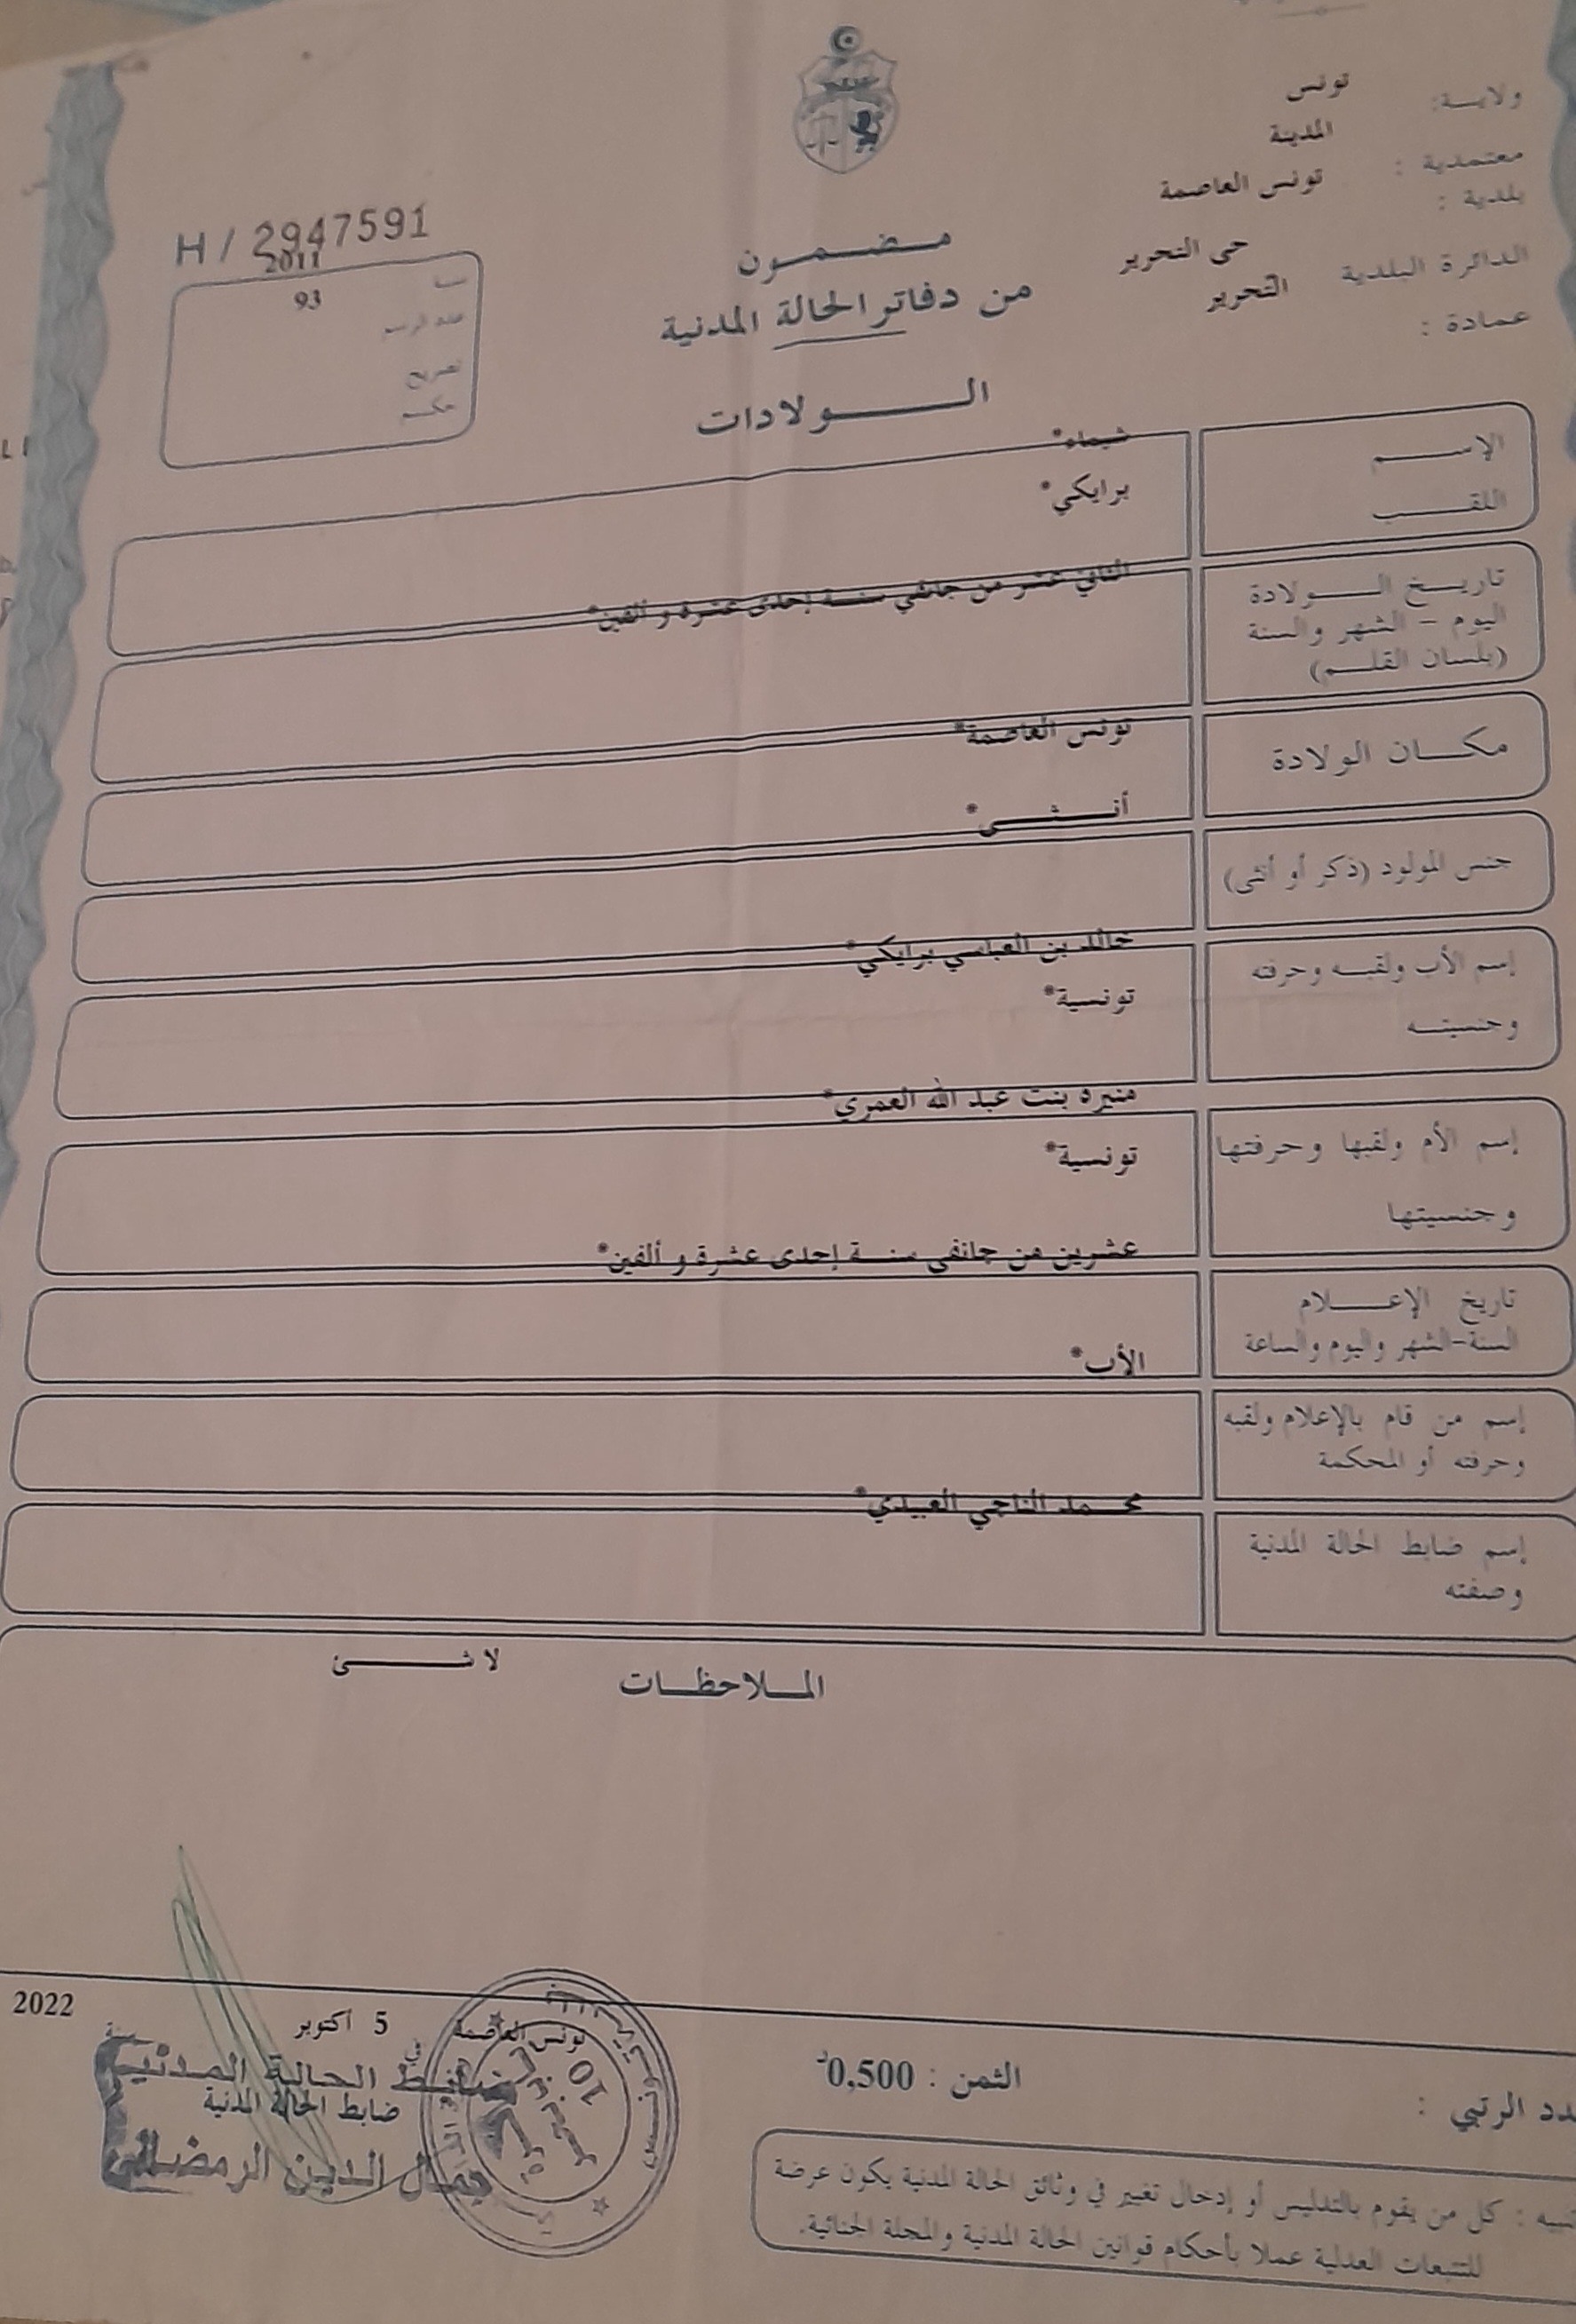 ولايـــة: تونس
معتمدية : المدينة
بلدية : تونس العاصمة
الدائرة البلدية حى التحرير
عمادة : التحرير
H / 2947591
2011
93
عدد الرسم
تصريح
حكـــم
مـضـمـون
من دفاتر الحالة المدنية
الـــولادات
الإســـم شيماء*
اللقـــب برايكي*
تاريــخ الـــولادة الثاني عشر من جانفي سنــة إحدى عشرة و ألفين*
اليوم - الشهر والسنة
(بلسان القلـــم)
مكـــان الولادة تونس العاصمة*
جنس المولود (ذكر أو أنثى) أنـــثـــى*
إسم الأب ولقبــه وحرفته خالد بن العباسي برايكي*
وجنسيتــه تونسية*
إسم الأم ولقبها وحرفتها منيرة بنت عبد الله العمري*
وجنسيتها تونسية*
تاريخ الإعـــلام عشرين من جانفي سنــة إحدى عشرة و ألفين*
السنة-الشهر واليوم والساعة
إسم من قام بالإعلام ولقبه الأب*
وحرفته أو المحكمة
إسم ضابط الحالة المدنية محـــمد الناجي العبيدي*
وصفته
المـلاحظـات لا شـــئ
تونس العاصمة في 5 أكتوبر سنة 2022
ضابط الحالة المدنية
ضابط الحالة المدنية
جمال الدين الرمضاني
10
الثمن : 0,500د
دد الرتبي :
نبيه : كل من يقوم بالتدليس أو إدخال تغيير في وثائق الحالة المدنية يكون عرضة
للتتبعات العدلية عملا بأحكام قوانين الحالة المدنية والمجلة الجنائية.